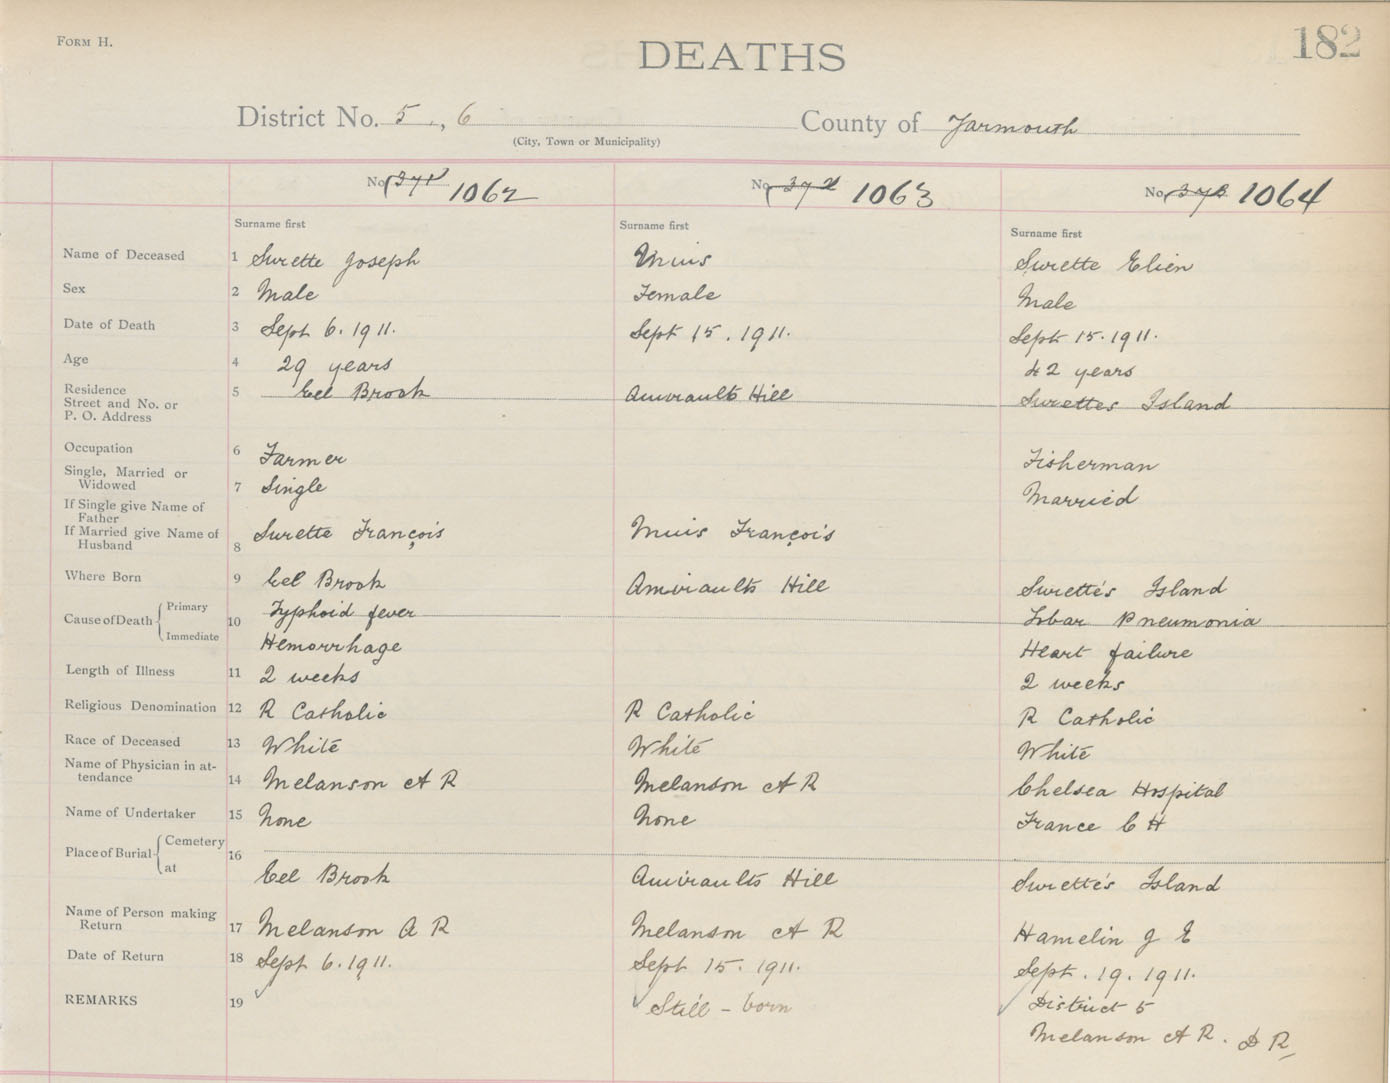 FORM H.
182
DEATHS
District No. 5, 6 County of Yarmouth
(City, Town or Municipality)
No. 371 1062 No. 372 1063 No. 373 1064
Surname first Surname first Surname first
Name of Deceased 1 Surette Joseph Muis Surette Elien
Sex 2 Male Female Male
Date of Death 3 Sept 6. 1911. Sept 15. 1911. Sept 15. 1911.
Age 4 29 years 42 years
Residence
Street and No. or 5 Eel Brook Amiraults Hill Surettes Island
P. O. Address
Occupation 6 Farmer Fisherman
Single, Married or
Widowed 7 Single Married
If Single give Name of
Father
If Married give Name of
Husband 8 Surette François Muis François
Where Born 9 Eel Brook Amiraults Hill Surette's Island
Cause of Death Primary 10 Typhoid fever Lobar Pneumonia
Immediate Hemorrhage Heart failure
Length of Illness 11 2 weeks 2 weeks
Religious Denomination 12 R Catholic R Catholic R Catholic
Race of Deceased 13 White White White
Name of Physician in at-
tendance 14 Melanson A R Melanson A R Chelsea Hospital
Name of Undertaker 15 None None France C H
Place of Burial Cemetery 16
at Eel Brook Amiraults Hill Surette's Island
Name of Person making
Return 17 Melanson A R Melanson A R Hamelin J E
Date of Return 18 Sept 6. 1911. Sept 15. 1911. Sept. 19. 1911.
REMARKS 19 Still - born District 5
Melanson A R. D R